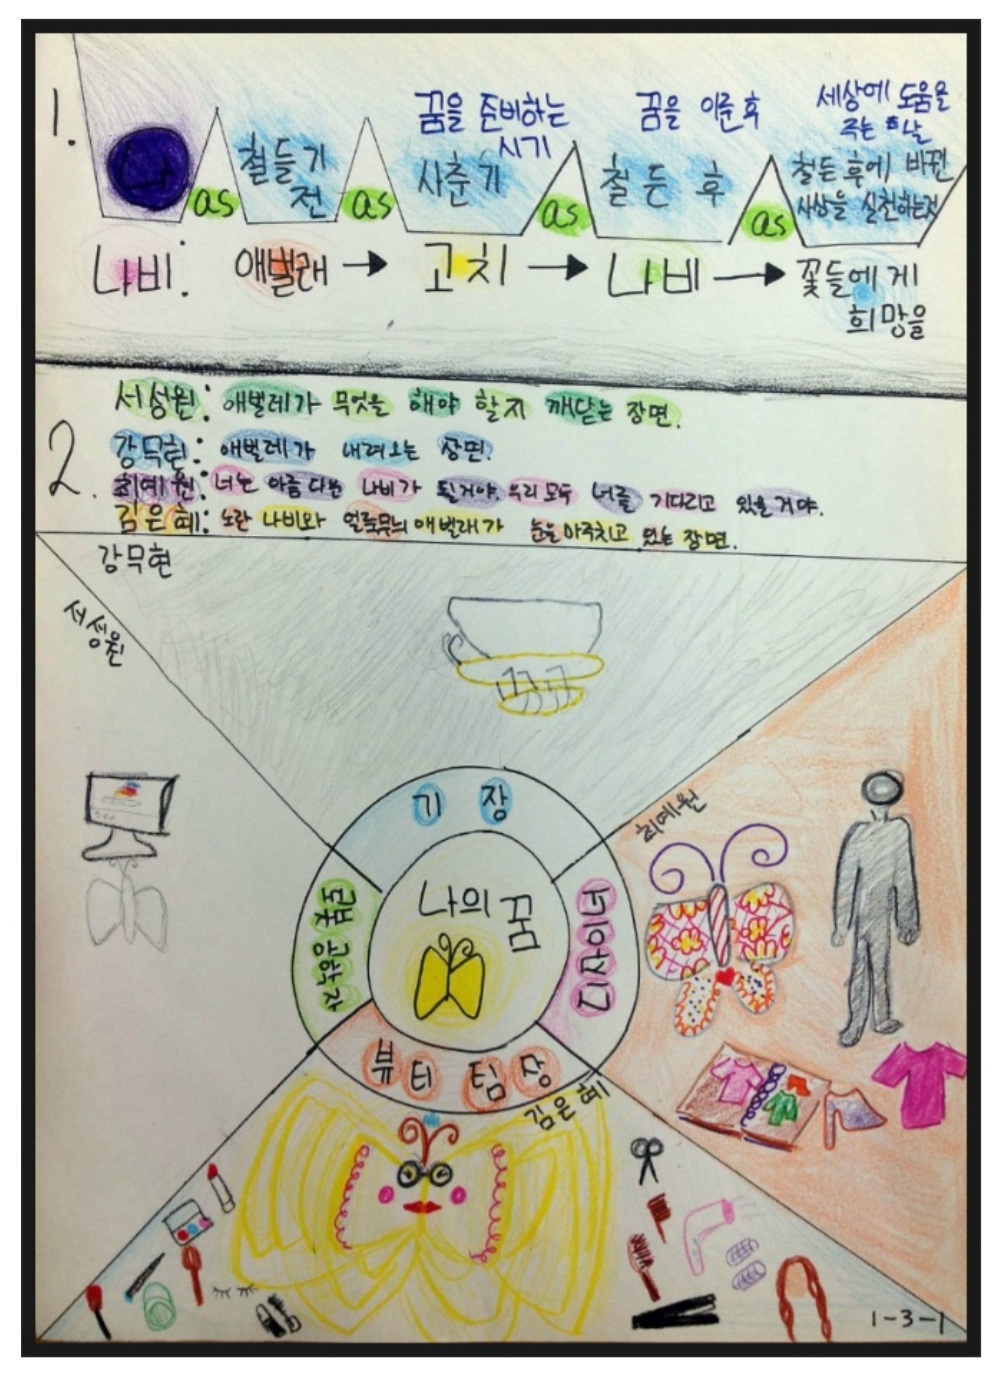 1.
꿈을 준비하는 시기
꿈을 이룬 후
세상에 도움을 주는 날
나 as 철들기 전 as 사춘기 as 철든 후 as 철든 후에 바뀐 사상을 실천하는것
나비: 애벌래 → 고치 → 나비 → 꽃들에게 희망을
2.
서성원: 애벌레가 무엇을 해야 할지 깨닫는 장면.
강무현: 애벌레가 내려오는 장면.
최예원: 너는 아름다운 나비가 될거야. 우리 모두 너를 기다리고 있을거야.
김은혜: 노란 나비와 얼룩무늬 애벌래가 눈을 마주치고 있는 장면.
강무현
서성원
최예원
기장
나의 꿈
디자이너
뷰티팀장
김은혜
1-3-1